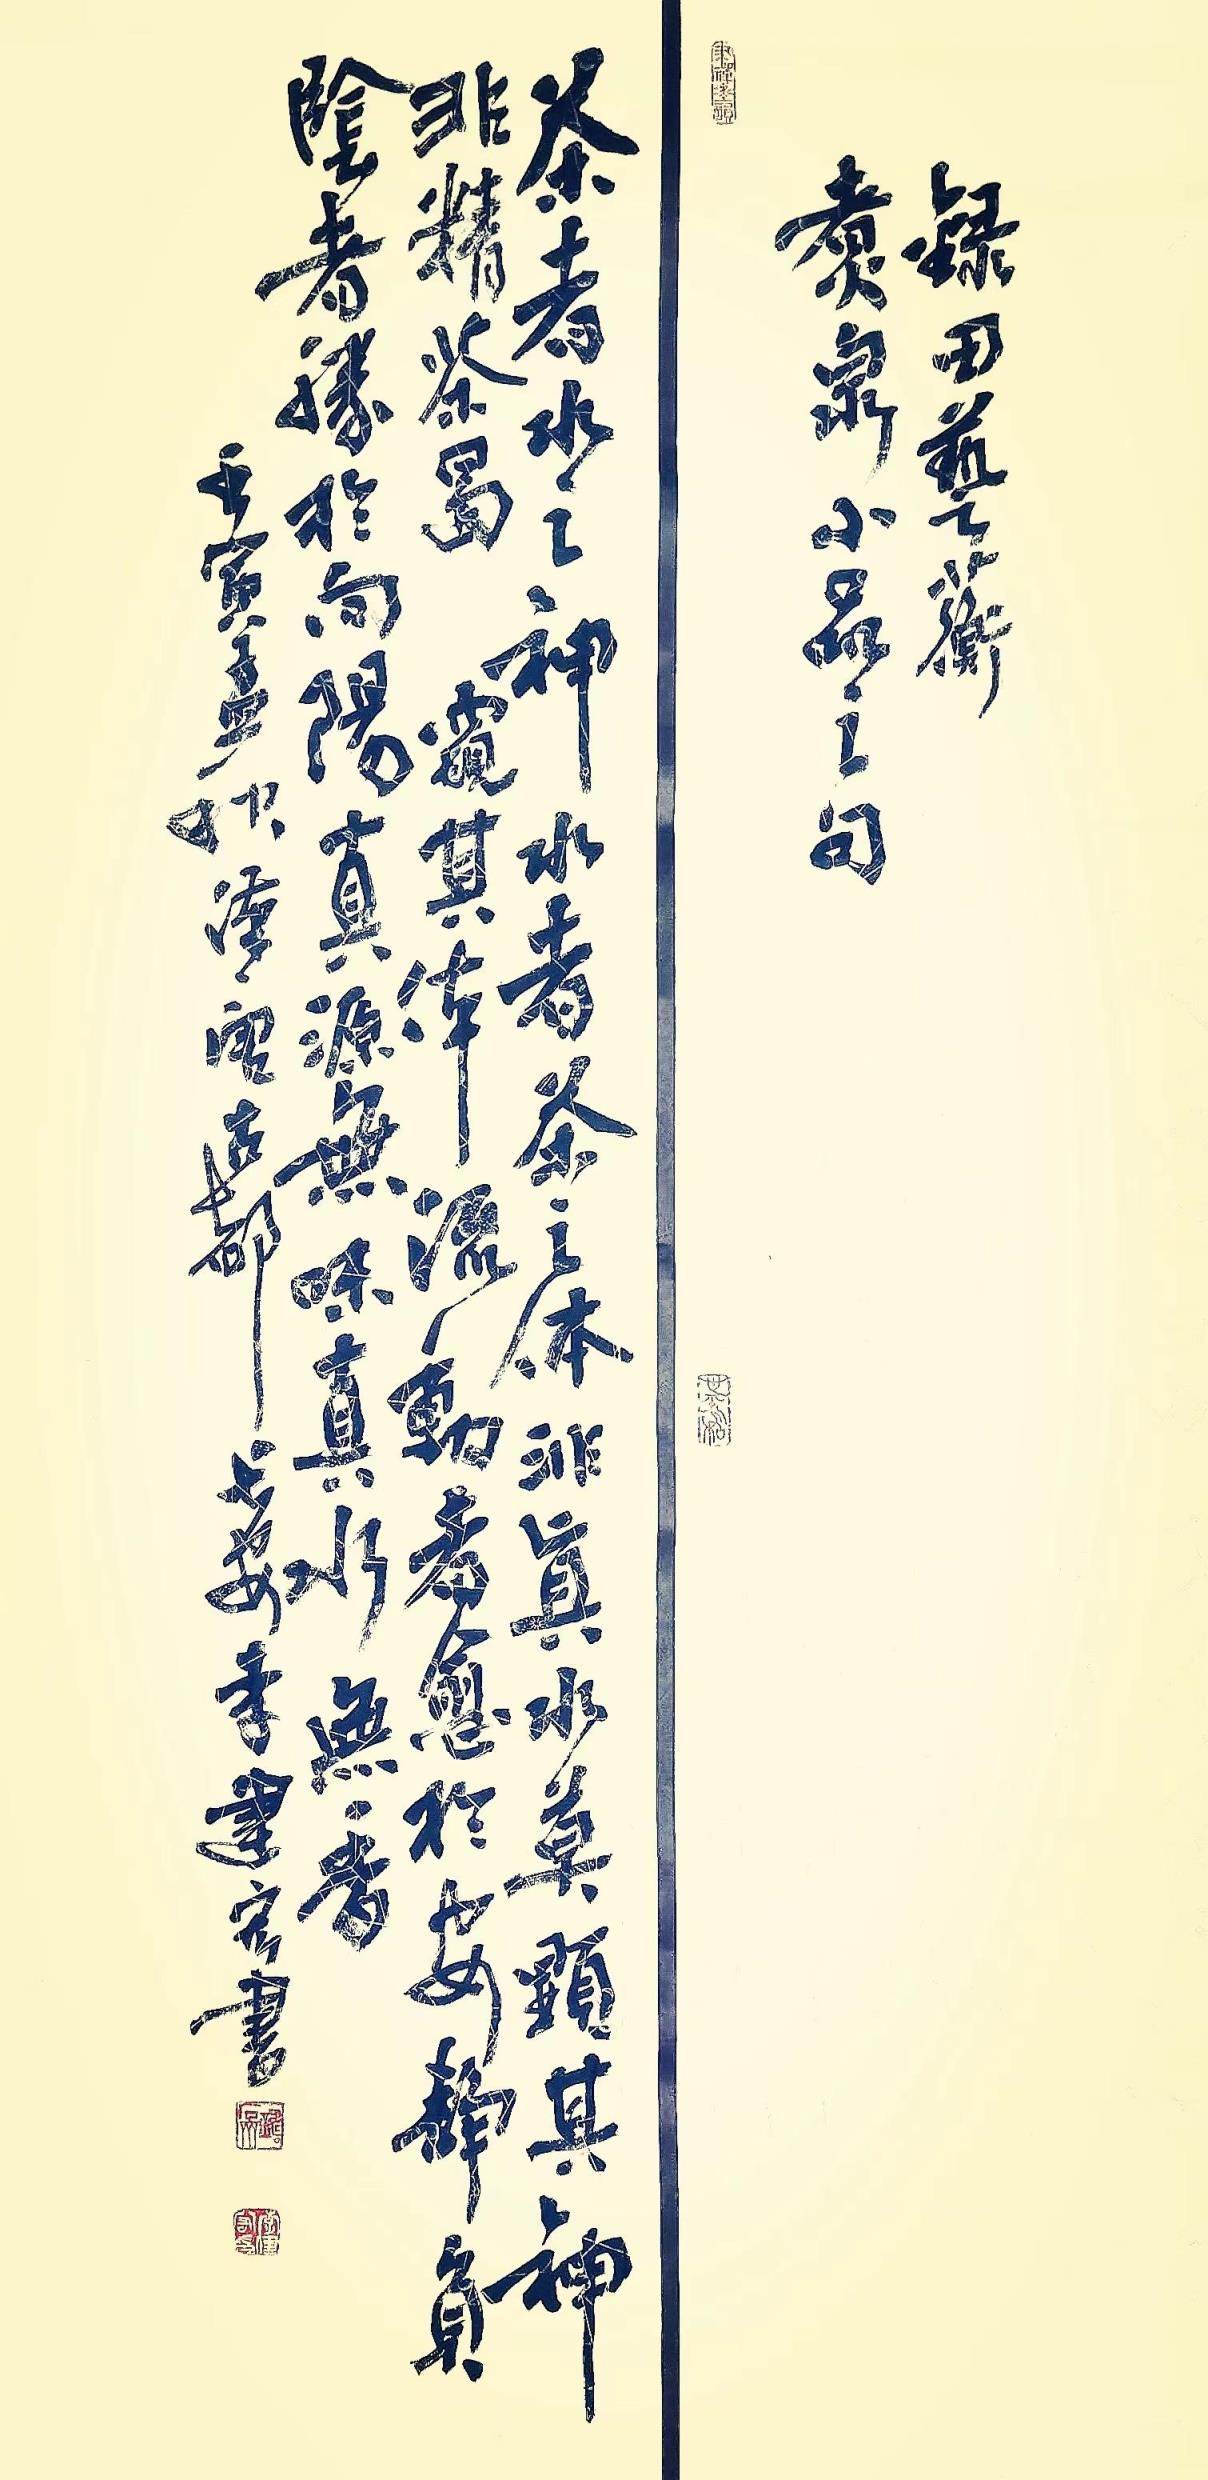 錄田藝蘅
煮泉小品之句
茶者水之神水者茶之体非真水莫顯其神
非精茶曷窺其体流動者愈於安靜負
陰者勝於向陽真源無味真水無香
壬寅孟秋漢古都長安李建安書